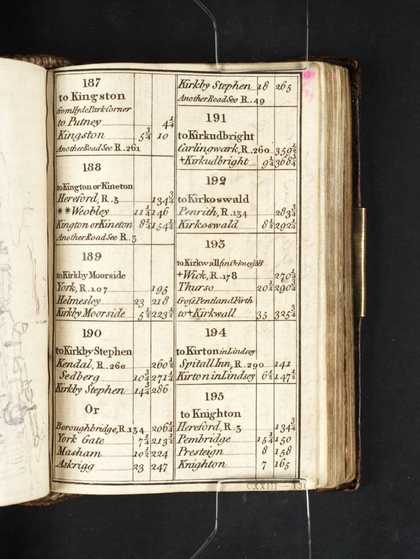 187
to Kingston
from Hyde Park Corner
to Putney 4¼
Kingston 5¾ 10
Another Road See R. 261
188
to Kington or Kineton
Hereford, R. 3 134¾
** Weobley 11¼ 146
Kington or Kineton 8½ 154½
Another Road See R. 3
189
to Kirkby Moorside
York, R. 107 195
Helmesley 23 218
Kirkby Moorside 5½ 223½
190
to Kirkby Stephen
Kendal, R. 260 260¾
Sedberg 10¾ 271½
Kirkby Stephen 14½ 286
Or
Boroughbridge, R. 134 206¼
York Gate 7¼ 213½
Masham 10½ 224
Askrigg 23 247
Kirkby Stephen 18 265
Another Road See R. 49
191
to Kirkudbright
Carlingwark, R. 260 359¼
+Kirkudbright 9¼ 368½
192
to Kirkoswald
Penrith, R. 134 283¾
Kirkoswald 8½ 292¼
193
to Kirkwall
+Wick, R. 178 270¼
Thurso 20¼ 290½
Cross Pentland Firth
to+Kirkwall 35 325½
194
to Kirton in Lindsey
Spitall Inn, R. 290 141
Kirton in Lindsey 6¼ 147¼
195
to Knighton
Hereford, R. 3 134¾
Pembridge 15¼ 150
Presteign 8 158
Knighton 7 165